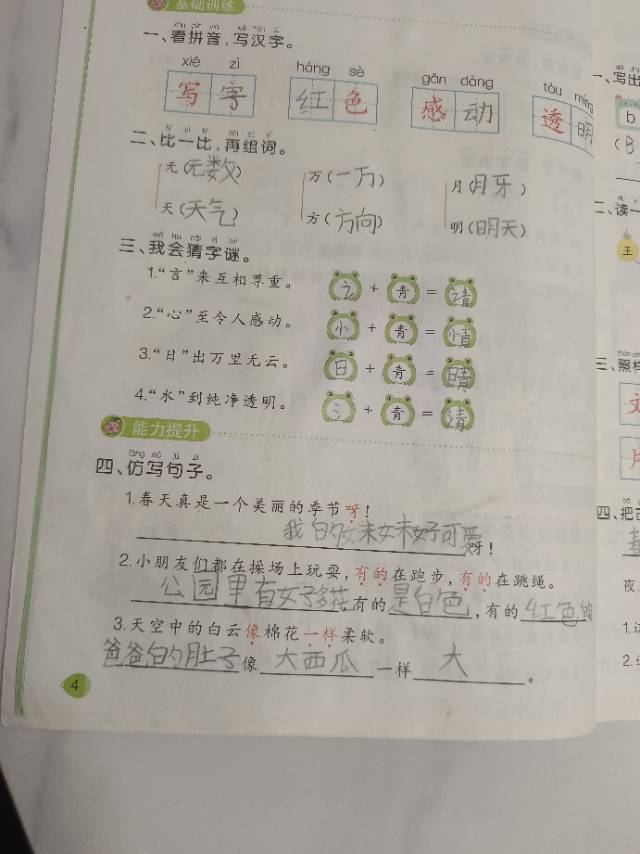 基础训练
一、看拼音,写汉字。
xiě zì háng sè gǎn dàng tòu míng
写字 红色 感动 透明
二、比一比,再组词。
无(无数) 万(一万) 月(月牙)
天(天气) 方(方向) 明(明天)
三、我会猜字谜。
1.“言”来互相尊重。 讠+青=请
2.“心”至令人感动。 忄+青=情
3.“日”出万里无云。 日+青=晴
4.“水”到纯净透明。 氵+青=清
能力提升
四、仿写句子。
1.春天真是一个美丽的季节呀!
我的妹妹好可爱呀!
2.小朋友们都在操场上玩耍,有的在跑步,有的在跳绳。
公园里有好多花有的是白色,有的红色的
3.天空中的白云像棉花一样柔软。
爸爸的肚子像大西瓜一样大。
4
一、写出
b
二、读一
王
三、照样
四、把
夜
1.
2.